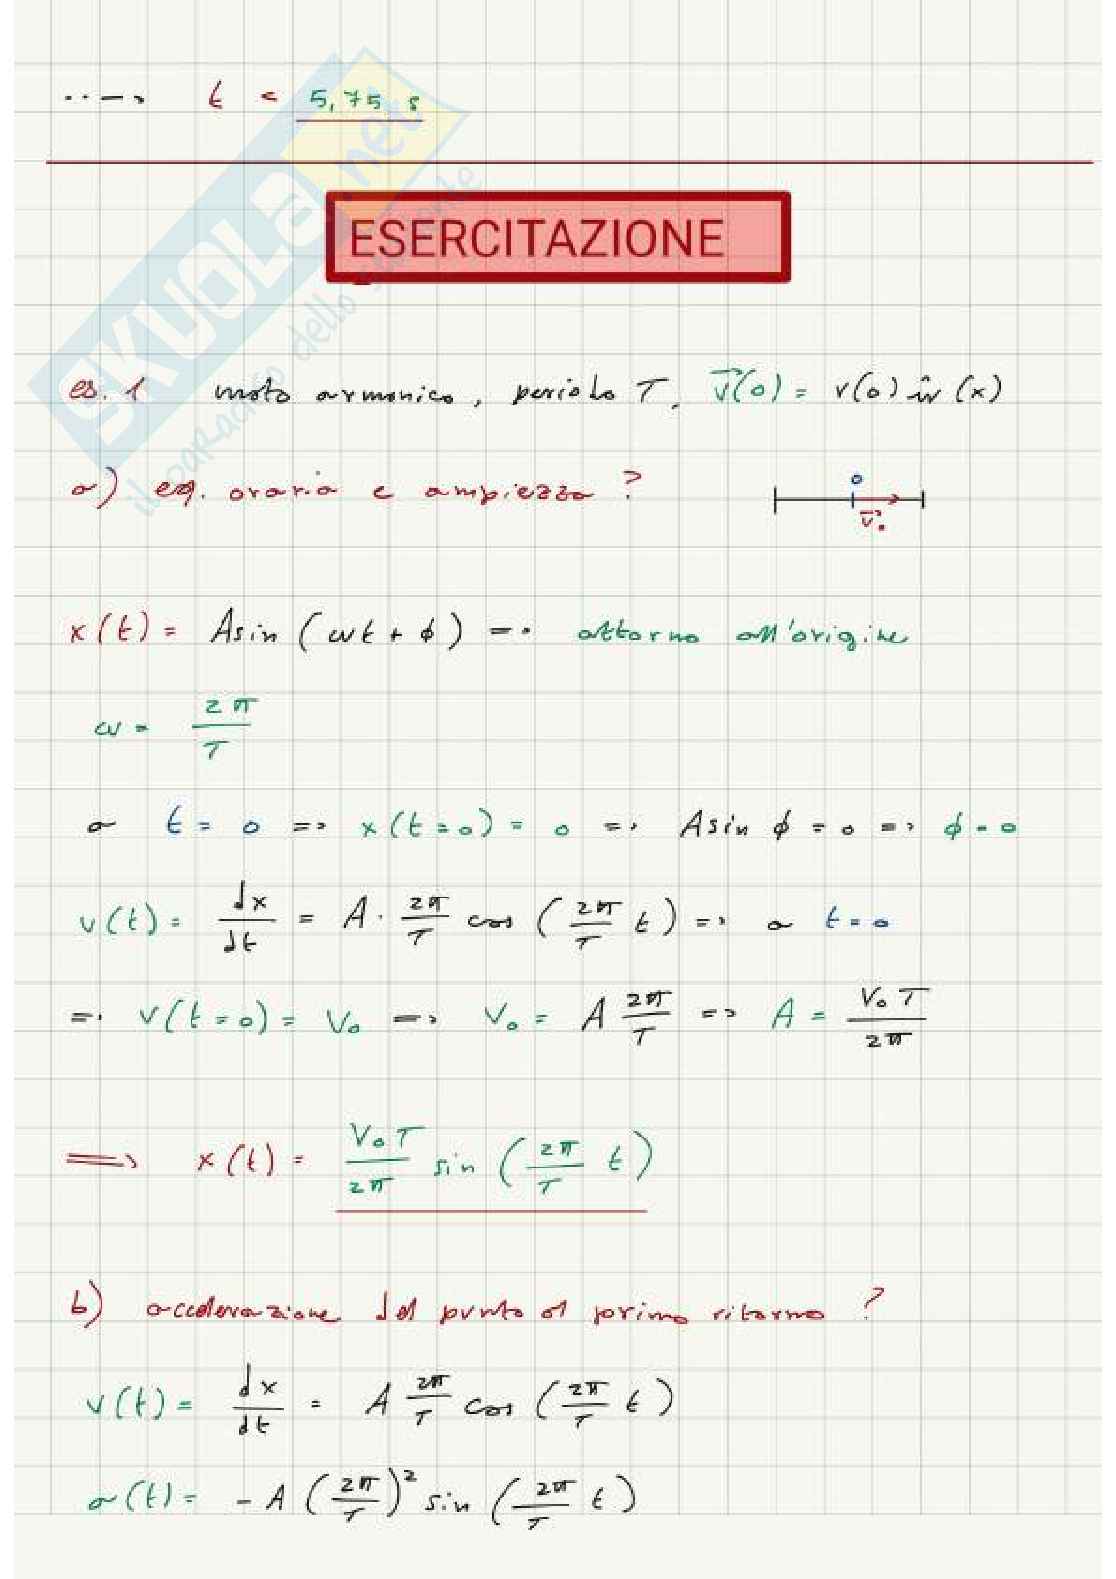 ...→ t < 5,75 s
SKUOLA.net
il paradiso dello studente
ESERCITAZIONE
es. 1 moto armonico, periodo T, v⃗(0) = v(0) û(x)
a) eq. oraria e ampiezza ?
0
v⃗₀
x(t) = A sin (ωt + φ) => attorno all'origine
ω = 2π/T
a t = 0 => x(t=0) = 0 => A sin φ = 0 => φ = 0
v(t) = dx/dt = A · 2π/T cos (2π/T t) => a t = 0
=> v(t=0) = V₀ => V₀ = A 2π/T => A = V₀T/2π
=> x(t) = V₀T/2π sin (2π/T t)
b) accelerazione del punto al primo ritorno ?
v(t) = dx/dt = A 2π/T cos (2π/T t)
a(t) = - A (2π/T)² sin (2π/T t)